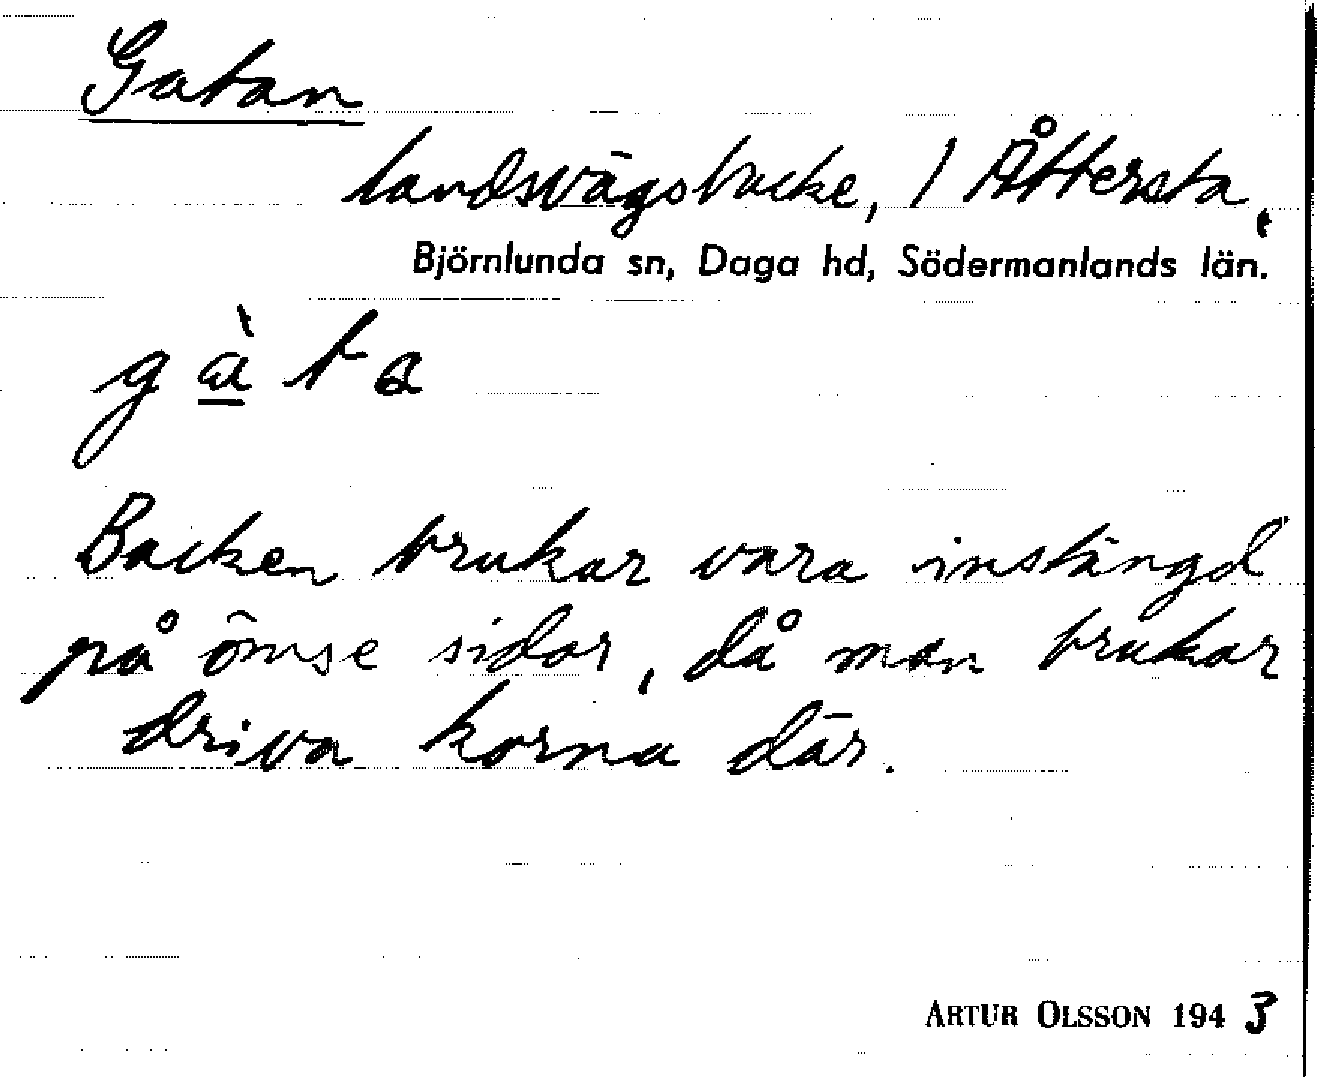 Gatan
landsvägsbacke, / Åttersta,
Björnlunda sn, Daga hd, Södermanlands län.
gàta
Backen brukar vara instängd
på ömse sidor, då man brukar
driva korna där.
ARTUR OLSSON 1943